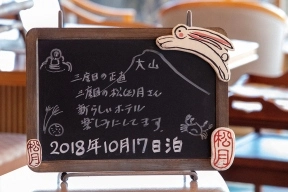 大山
三度目の正直
三度目の松月さん
新らしいホテル
楽しみにしてます。
2018年10月17日泊
松月
松月